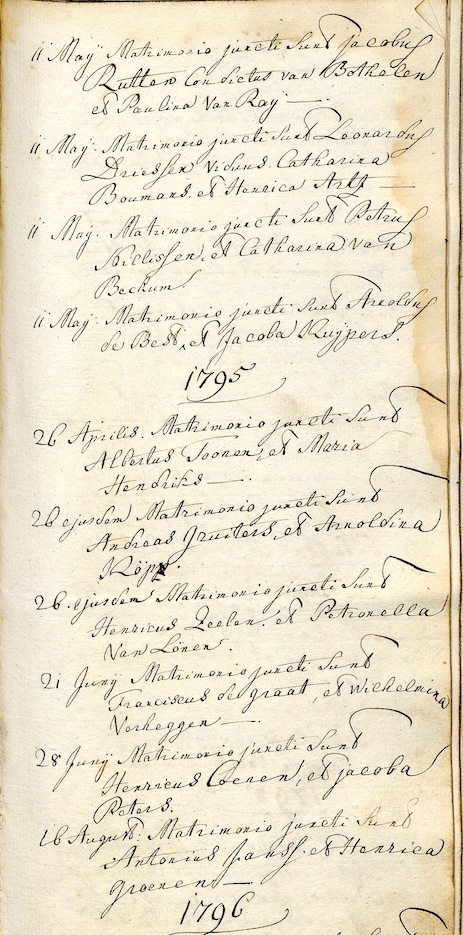 11 Maÿ Matrimonio juncti sunt jacobus
Rutten Condictus van Bothelen
et Paulina Van Raÿ —.
11 Maÿ. Matrimonio juncti sunt Leonardus
Driessen Viduus Catharina
Boumans. et Henrica Artz —
11 Maÿ. Matrimonio juncti sunt Petrus
Nillissen, et Catharina van
Beckum.
11 Maÿ. Matrimonio juncti sunt Arnoldus
de Best, et Jacoba Kuÿpers.
1795
26 Aprilis. Matrimonio juncti sunt
Albertus Toonen, et Maria
Hendriks —.
26 ejusdem Matrimonio juncti sunt
Andreas Gruiters, et Arnoldina
26. ejusdem Matrimonio juncti sunt
Henricus Zeelen. et Petronella
Van Lönen.
21 Junÿ Matrimonio juncti sunt
Franciscus de graat, et Wilhelmina
Verheggen —.
28 Junÿ Matrimonio juncti sunt
Henricus Coenen, et jacoba
Peters.
16 August: Matrimonio juncti sunt
Antonius Janss. et Henrica
groenen —
1796